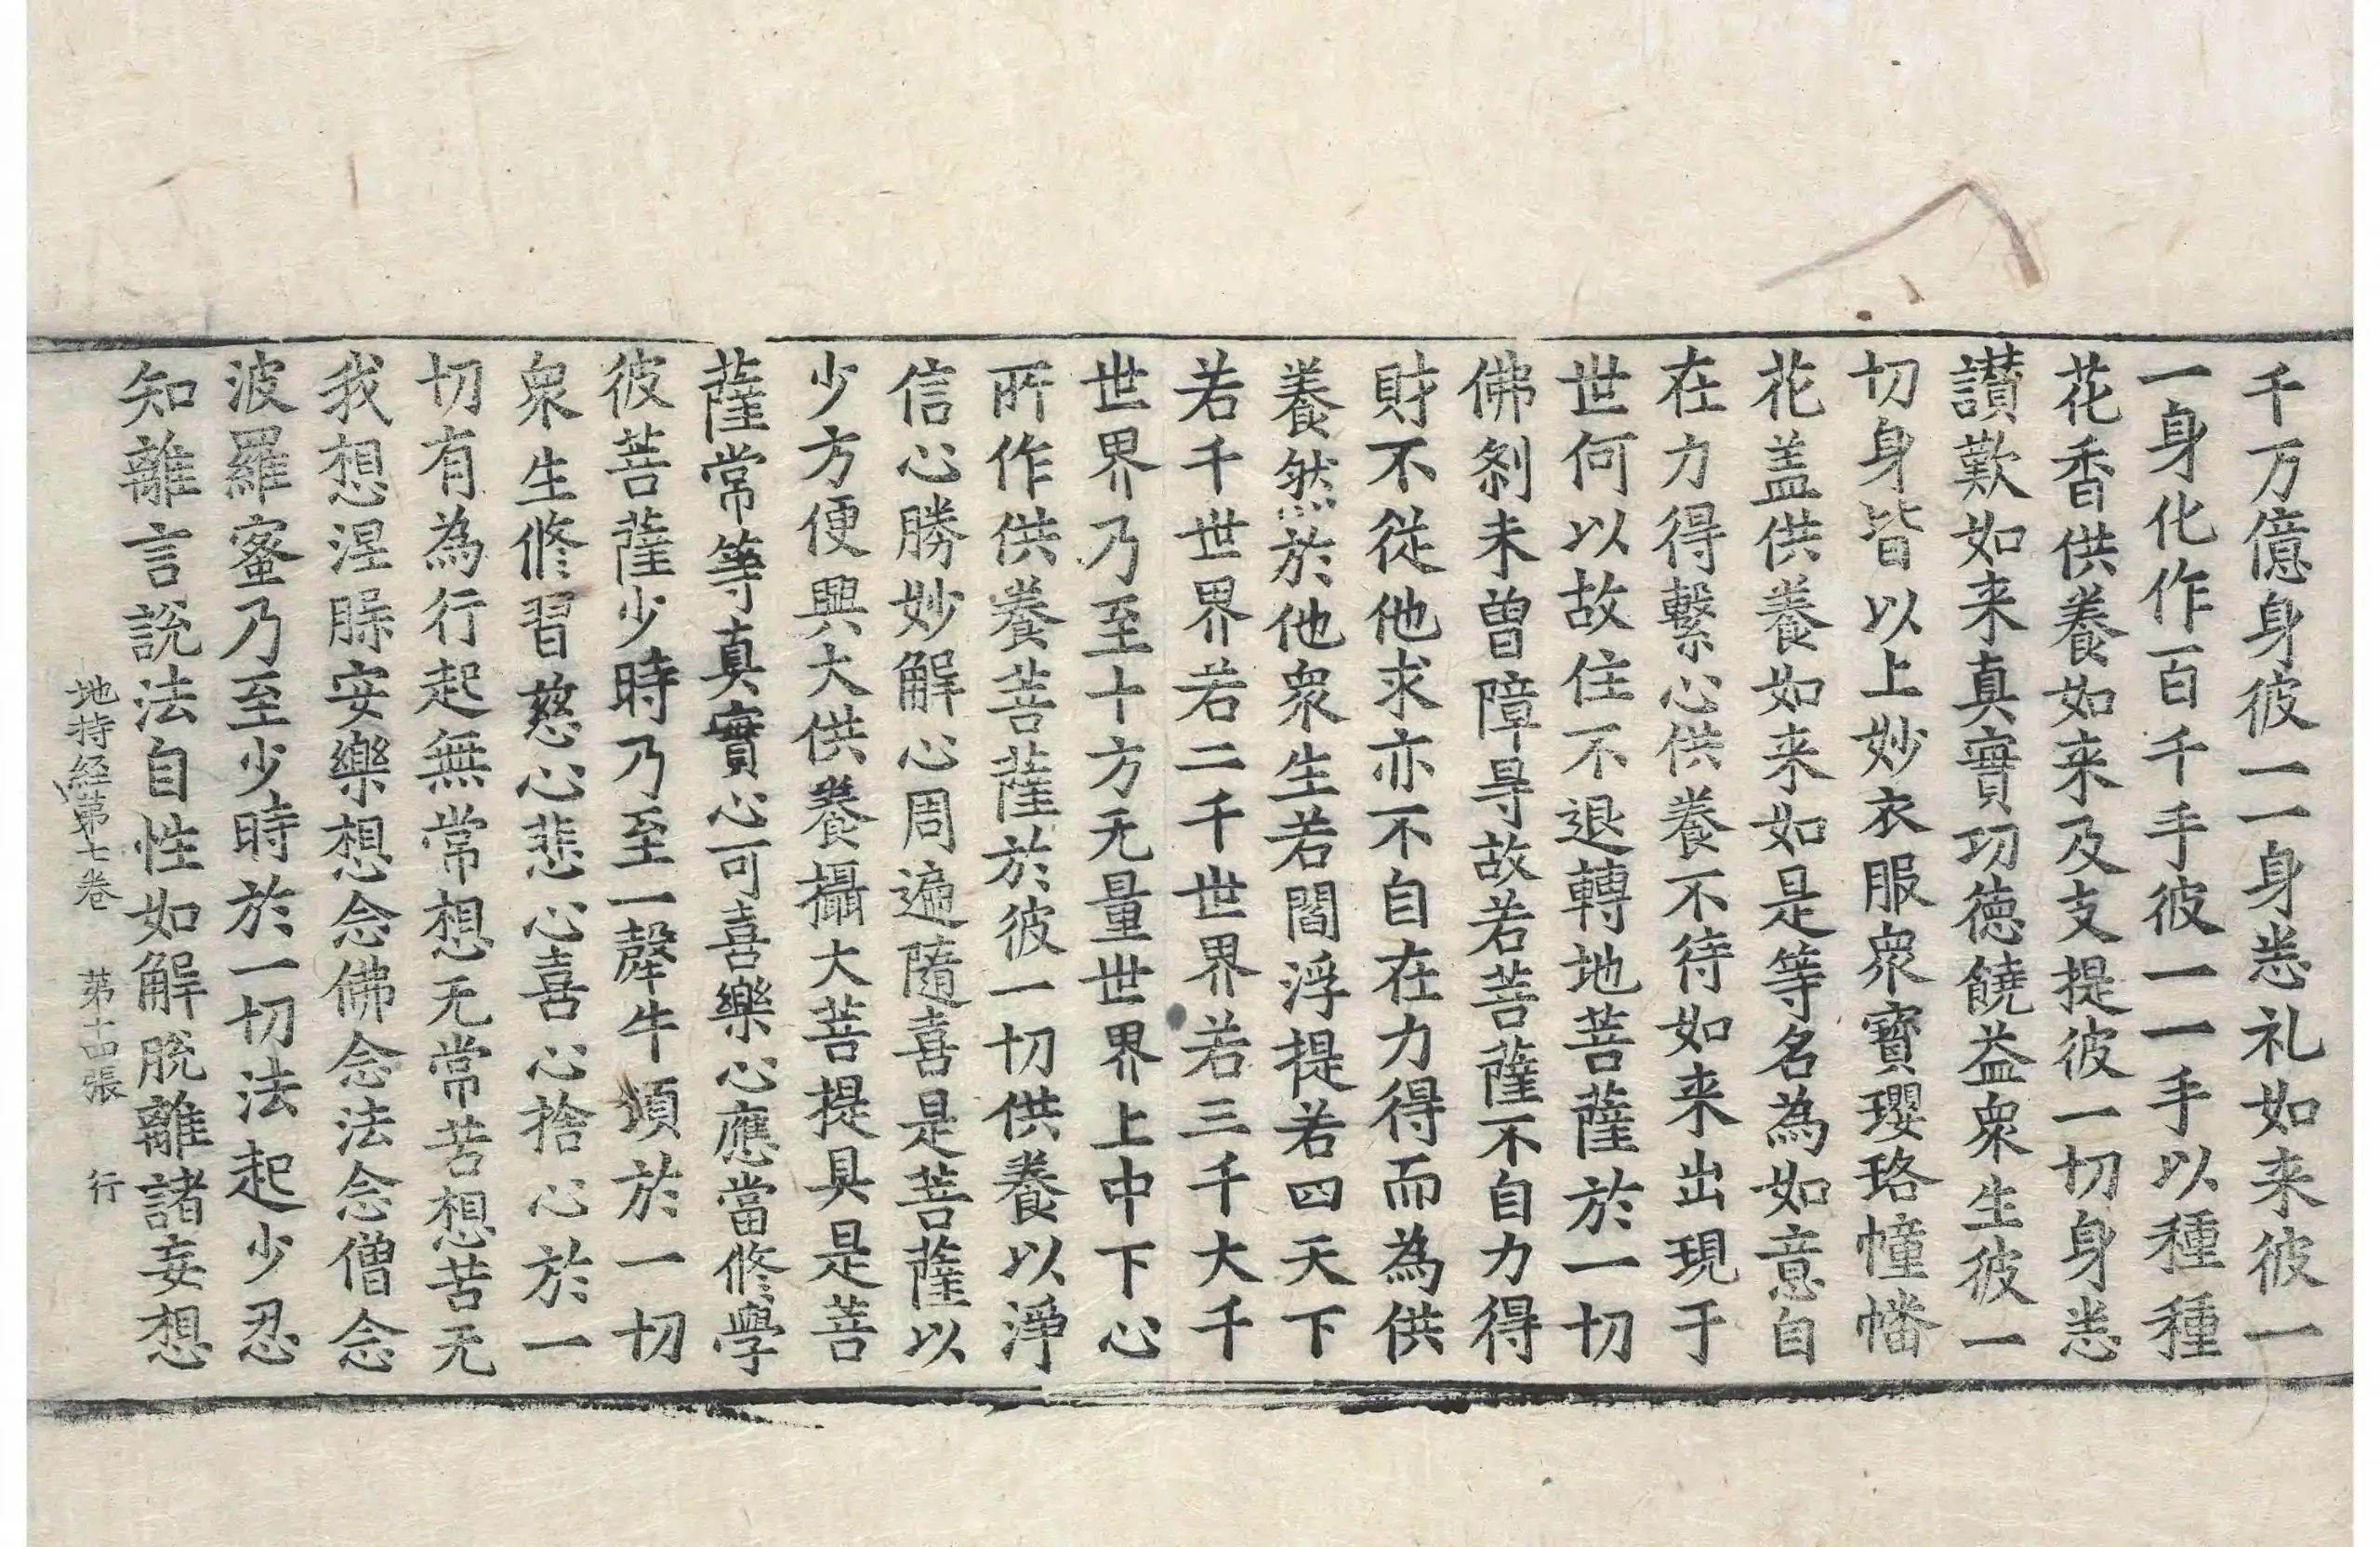 千万億身彼一一身悉礼如来彼一
一身化作百千手彼一一手以種種
花香供養如来及支提彼一切身悉
讃歎如来真實功徳饒益衆生彼一
切身皆以上妙衣服衆寳瓔珞幢幡
花盖供養如来如是等名為如意自
在力得繫心供養不待如来出現于
世何以故住不退轉地菩薩於一切
佛刹未曽障㝵故若菩薩不自力得
財不從他求亦不自在力得而為供
養然於他衆生若閻浮提若四天下
若千世界若二千世界若三千大千
世界乃至十方无量世界上中下心
所作供養菩薩於彼一切供養以淨
信心勝妙解心周遍隨喜是菩薩以
少方便興大供養攝大菩提具是菩
薩常等真實心可喜樂心應當修學
彼菩薩少時乃至一𤛓牛頃於一切
衆生修習慈心悲心喜心捨心於一
切有為行起無常想无常苦想苦无
我想涅槃安樂想念佛念法念僧念
波羅蜜乃至少時於一切法起少忍
知離言説法自性如解脱離諸妄想
地持経第七卷 第十四張 行